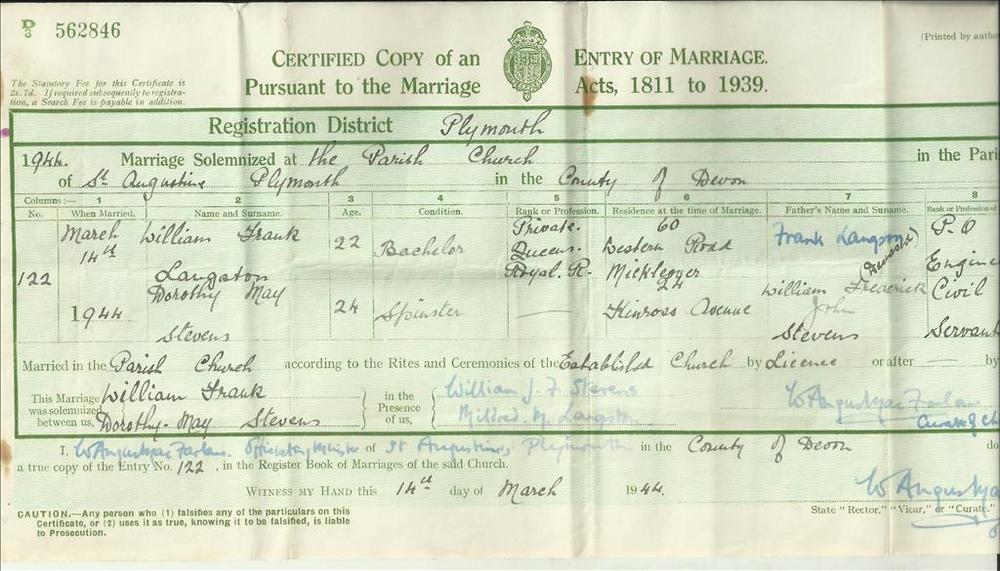 D/8 562846
[Printed by autho
CERTIFIED COPY of an ENTRY OF MARRIAGE.
Pursuant to the Marriage Acts, 1811 to 1939.
The Statutory Fee for this Certificate is
2s. 7d. If required subsequently to registra-
tion, a Search Fee is payable in addition.
Registration District Plymouth
1944. Marriage Solemnized at the Parish Church in the Pari
of St. Augustine Plymouth in the County of Devon
Columns:— 1 2 3 4 5 6 7 8
No. When Married. Name and Surname. Age. Condition. Rank or Profession. Residence at the time of Marriage. Father's Name and Surname. Rank or Profession of
122 March 14th 1944
William Frank Langston 22 Bachelor Private. Queens. Royal. R. 60 Western Road Mickleover Frank Langston (Deceased) P.O Engine
Dorothy May Stevens 24 Spinster — 24 Kinross Avenue William Frederick John Stevens Civil Servant
Married in the Parish Church according to the Rites and Ceremonies of the Established Church by Licence or after — by
This Marriage was solemnized between us, William Frank Dorothy May Stevens in the Presence of us, William J. F. Stevens Mildred M. Langston
I, Officiating Minister of St Augustines Plymouth in the County of Devon do
a true copy of the Entry No. 122, in the Register Book of Marriages of the said Church.
WITNESS MY HAND this 14th day of March 1944.
CAUTION.—Any person who (1) falsifies any of the particulars on this
Certificate, or (2) uses it as true, knowing it to be falsified, is liable
to Prosecution.
State "Rector," "Vicar," or "Curate."